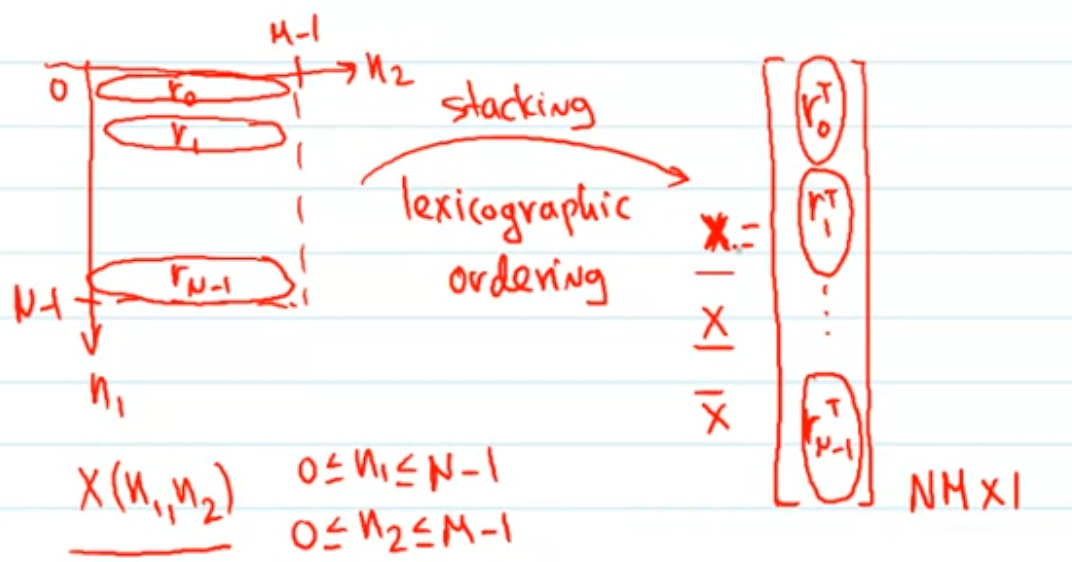 M-1
0
n₂
r₀
r₁
r_{N-1}
N-1
n₁
stacking
lexicographic
ordering
x =
x
x̄
r₀ᵀ
r₁ᵀ
⋮
rᵀ_{N-1}
NM×1
x(n₁,n₂) 0≤n₁≤N-1
0≤n₂≤M-1